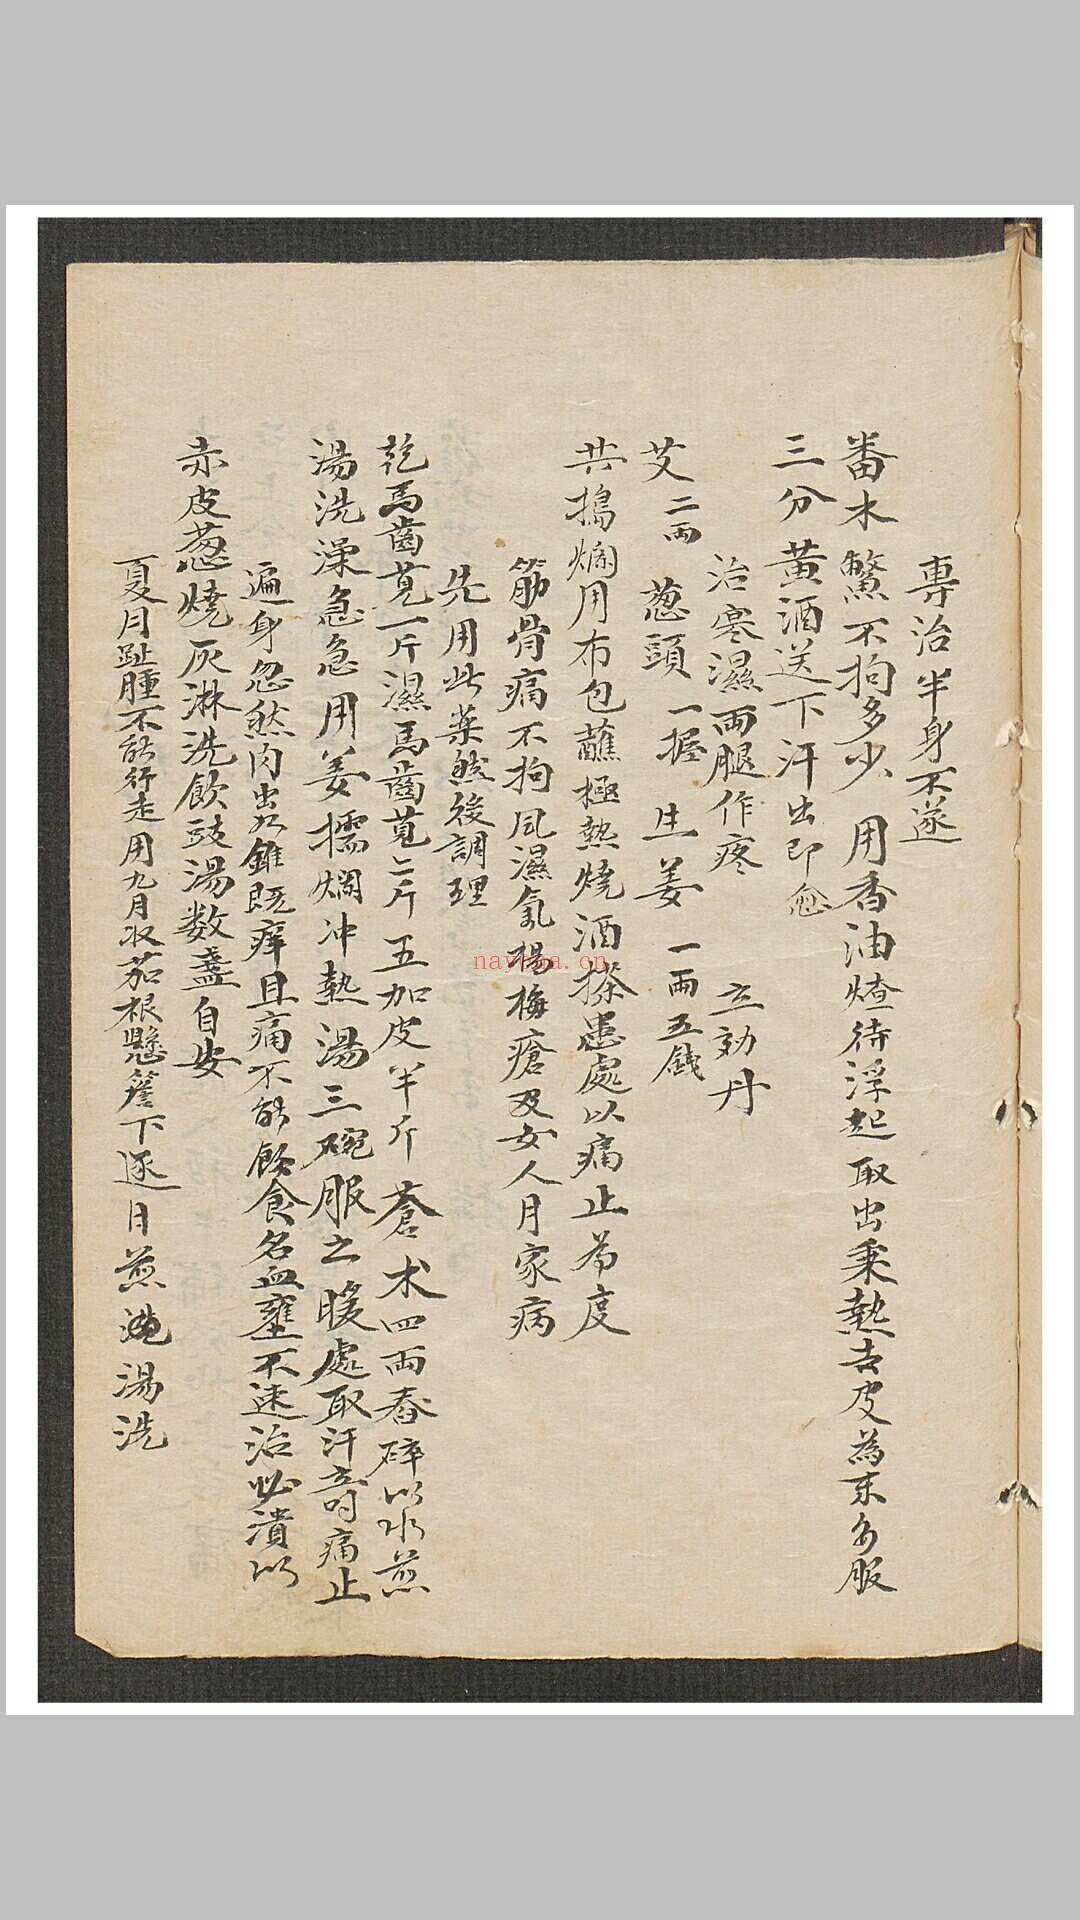 專治半身不遂
番木鱉不拘多少 用香油煠待浮起取出秉熱去皮為末每服
三分黃酒送下汗出即愈
治寒濕兩腿作疼 立効丹
艾二兩 葱頭一握 生姜一兩五錢
共搗爛用布包蘸極熱燒酒搽患處以痛止為度
筋骨痛不拘風濕氣楊梅瘡及女人月家病
先用此藥然後調理
乾馬齒莧一斤濕馬齒莧二斤五加皮半斤蒼朮四兩舂碎以水煎
湯洗澡急急用姜擂爛冲熱湯三碗服之暖處取汗立時痛止
遍身忽然肉出如錐既痒且痛不能飲食名血壅不速治必潰以
赤皮葱燒灰淋洗飲豉湯数盞自安
夏月趾腫不能行走用九月收茄根懸簷下逐日煎湯洗
nayona.cn